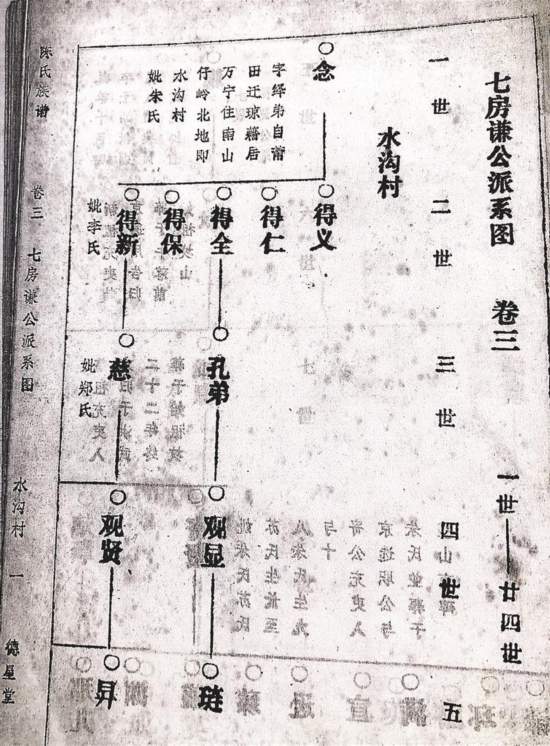 七房谦公派系图 卷三 一世——廿四世
水沟村
一世
二世
三世
四世
五
念
字绎弟自莆
田迁琼藉居
万宁住南山
仔岭北地即
水沟村
妣朱氏
得义
得仁
得全
得保
得新
妣李氏
孔弟
慈
妣郑氏
观显
观贤
琏
昇
陈氏族谱 卷三 七房谦公派系图 水沟村 一 德星堂